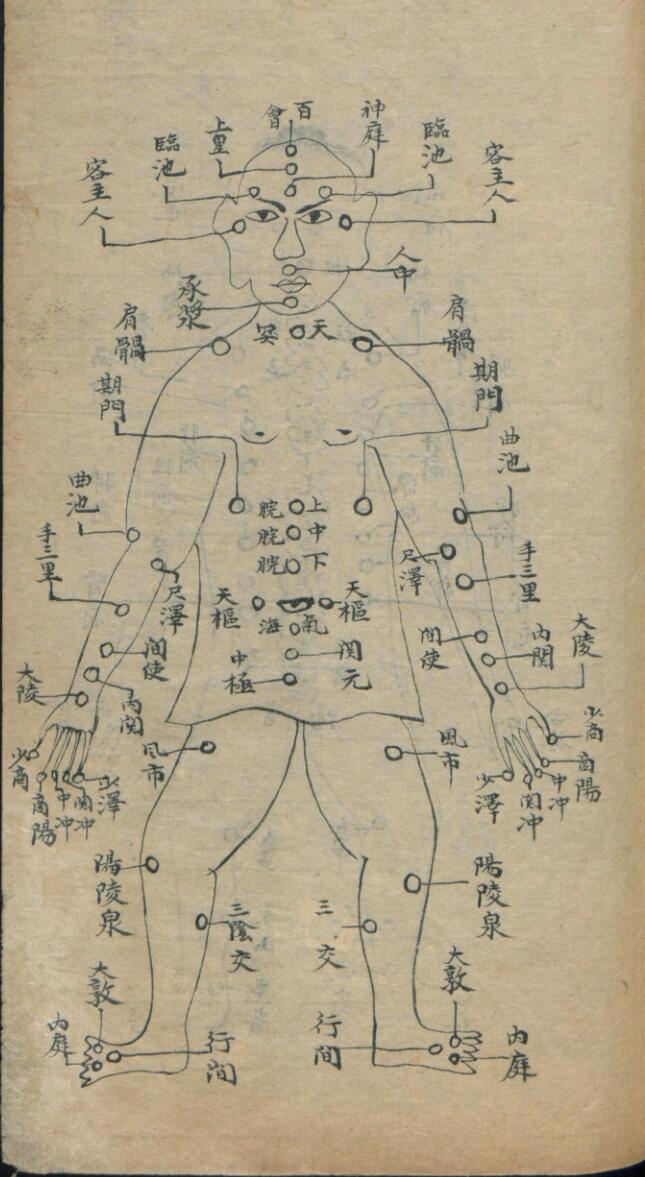 百會
神庭
上星
臨池
臨池
客主人
客主人
人中
承漿
天突
肩髃
肩髃
期門
期門
曲池
曲池
上脘
中脘
下脘
手三里
手三里
尺澤
尺澤
天樞
天樞
氣海
間使
間使
内関
内関
大陵
大陵
関元
中極
少商
商陽
中冲
関冲
少澤
少商
商陽
中冲
関冲
少澤
風市
風市
陽陵泉
陽陵泉
三交
三陰交
大敦
大敦
行間
行間
内庭
内庭